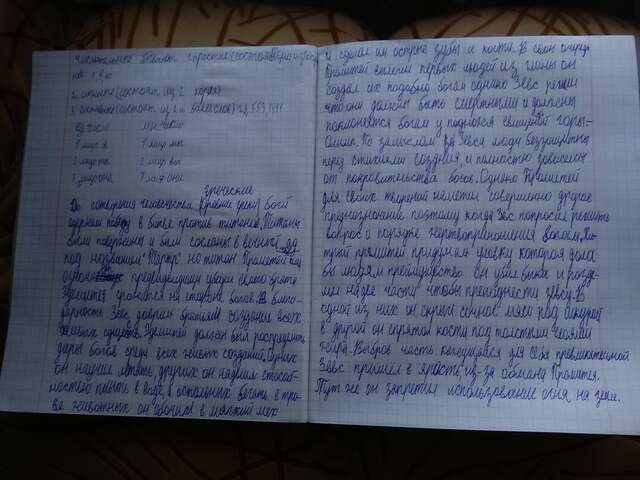 Числительные бывают 1 простые (состоят из 1 кор)
на 1,3,10
2. сложные (состоят из 2 корней)
3 составные (состоят из 2 и более слов) 22, 553, 1777
ед число мн. число
1 лицо я 1 лицо мы
2 лицо ты 2 лицо вы
3 лицо она 3 лицо они
греческие
До сотворения человечества (кривые реки) боги
одержали победу в битве против титанов. Титаны
были повержены и были сосланы в вечный ад
под названием "Тартар" но титан Прометей
предвидящим убедил своего брата
Эпиметея сражаться на стороне богов. В благо-
дарность Зевс доверил братьям создание всех
живых существ. Эпиметей должен был распределить
дары богов среди всех живых созданий. Одних
он научил летать других он наделил способ-
ностью плавать в воде, а остальных бегать в тра-
ве животных он облачил в мягкий мех
и сделал им острые зубы и кости. В свою очередь
Прометей вылепил первых людей из глины он
создал их подобно богам однако Зевс решил
что они должны быть смертными и должны
поклоняться богам у подножья священной горы-
Олимп. По замыслам Зевса люди беззащитны
перед стихиями создания, и полностью зависимы
от покровительства богов. Однако Прометей
для своих творений наметил совершенно другое
предназначение поэтому когда Зевс попросил решить
вопрос о порядке жертвоприношения богам, Хи-
трый прометей придумал уловку которая дала
бы людям преимущество. Он убил быка и разде-
лил на две части чтобы преподнести зевсу. В
одной из них он скрыл сочное мясо под шкурой
в другой он спрятал кости под толстыми слоями
жира. Выбрав часть казавшуюся для себя привлекательной
Зевс пришёл в ярость, из-за обмана Прометея.
Тут же он запретил использование огня на земле.